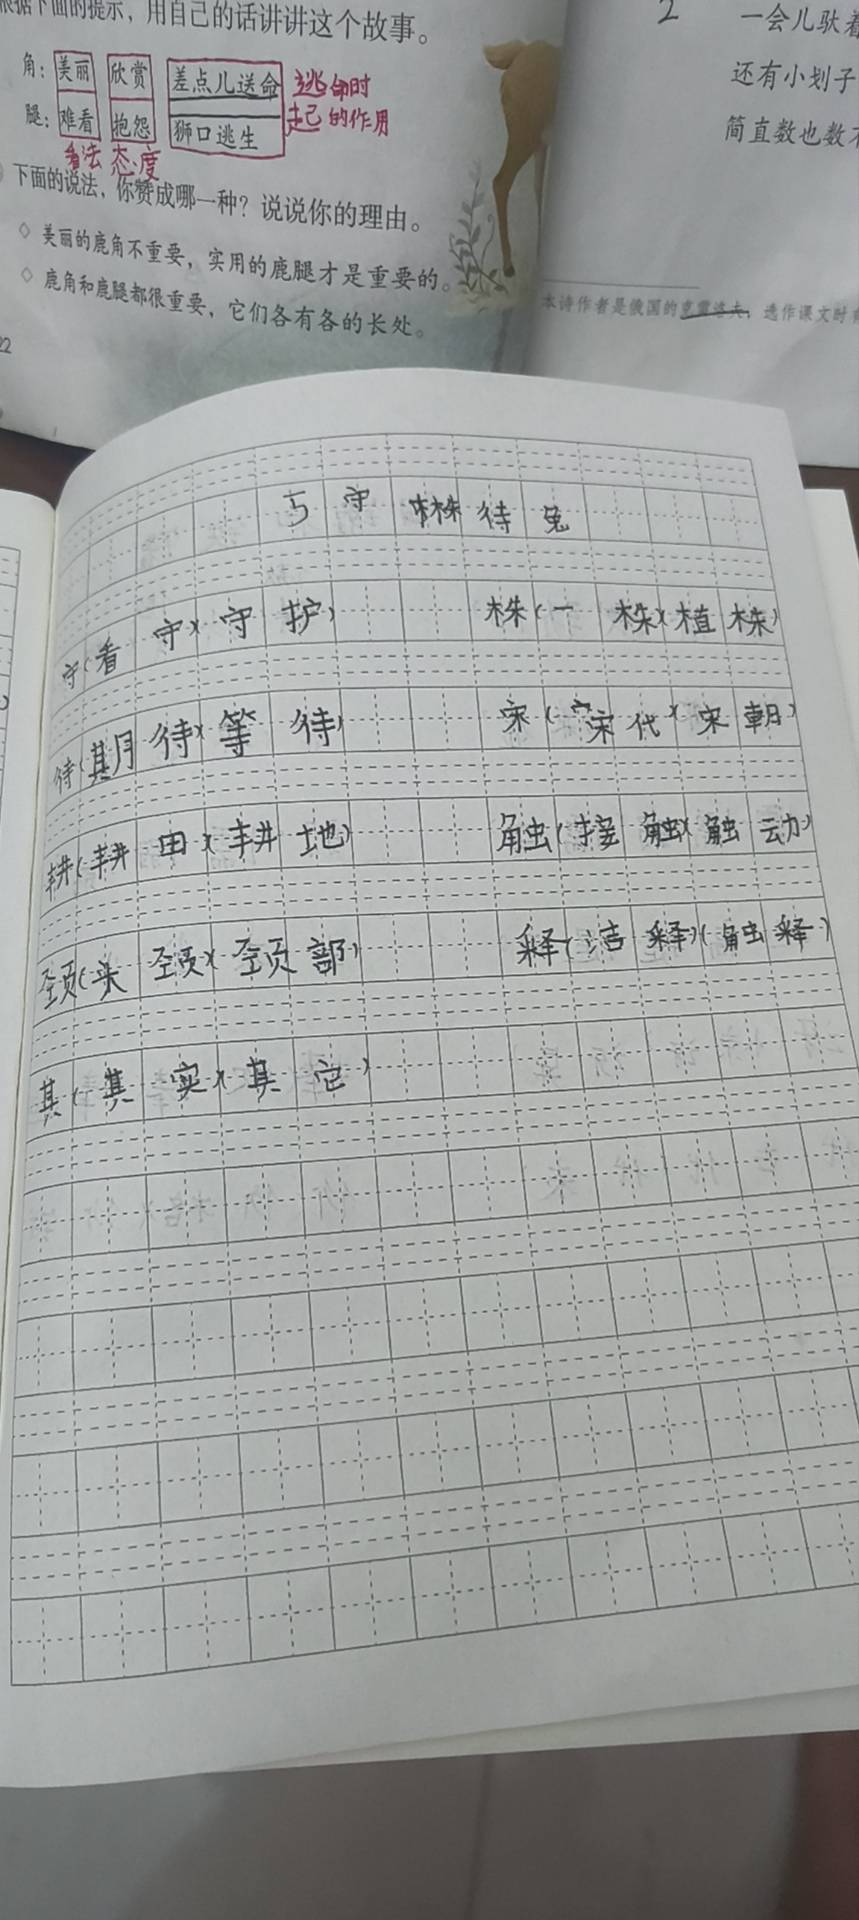 根据下面的提示，用自己的话讲讲这个故事。
角：美丽 欣赏 差点儿送命 逃命时
腿：难看 抱怨 狮口逃生 起的作用
看法 态度
下面的说法，你赞成哪一种？说说你的理由。
◇ 美丽的鹿角不重要，实用的鹿腿才是重要的。
◇ 鹿角和鹿腿都很重要，它们各有各的长处。
22
2
一会儿驮着
还有小划子
简直数也数不
本诗作者是俄国的克雷洛夫，选作课文时有
5 守株待兔
守(看守)(守护) 株(一株)(植株)
待(期待)(等待) 宋(宋代)(宋朝)
耕(耕田)(耕地) 触(接触)(触动)
颈(头颈)(颈部) 释(释)(触释)
其(其实)(其它)